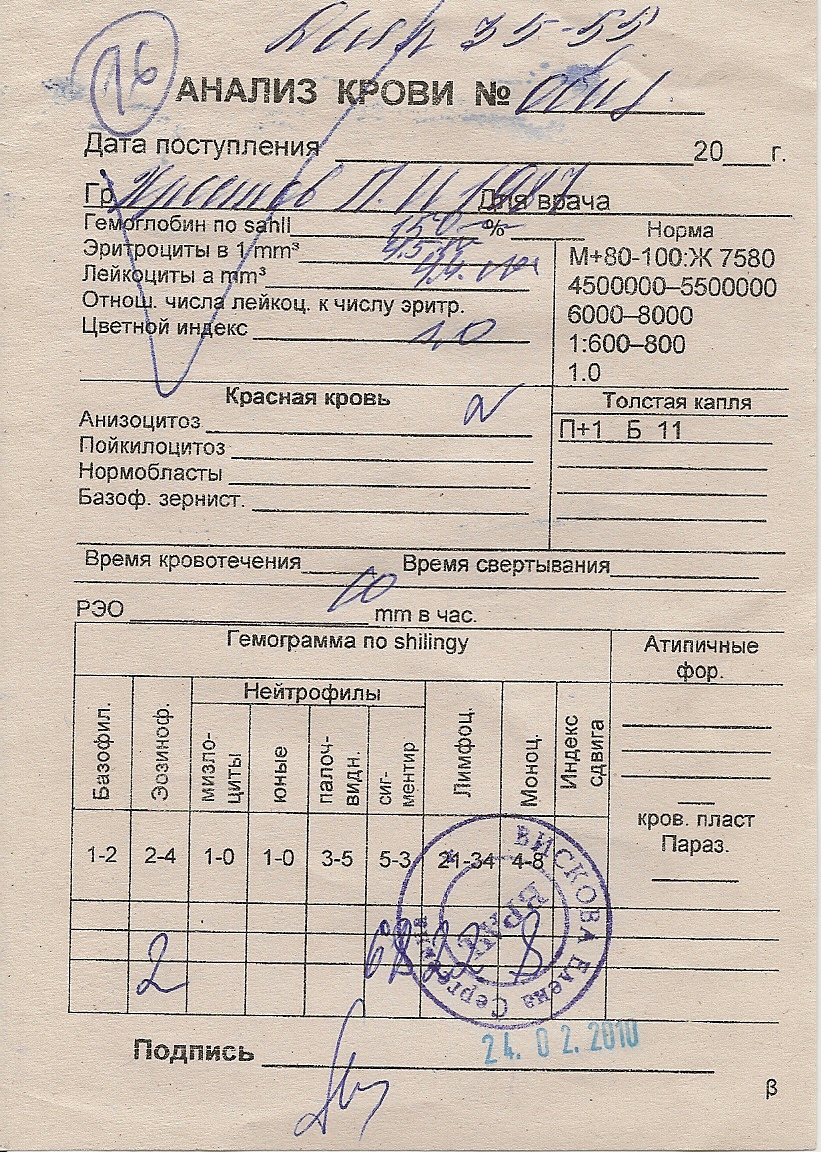 16
35-55
АНАЛИЗ КРОВИ №
Дата поступления 20 г.
Гр. П. И 1987 Для врача
Гемоглобин по sahli 150 %
Норма
Эритроциты в 1 mm³ 4,5
М+80-100:Ж 7580
Лейкоциты а mm³ 4,4
4500000–5500000
Отнош. числа лейкоц. к числу эритр.
6000–8000
Цветной индекс 1,0
1:600–800
1.0
Красная кровь
Толстая капля
Анизоцитоз
П+1 Б 11
Пойкилоцитоз
Нормобласты
Базоф. зернист.
Время кровотечения Время свертывания
РЭО 10 mm в час.
Гемограмма по shilingy
Атипичные
фор.
Базофил.
Эозиноф.
Нейтрофилы
мизло-
циты
юные
палоч-
видн.
сиг-
ментир
Лимфоц.
Моноц.
Индекс
сдвига
кров. пласт
Параз.
1-2 2-4 1-0 1-0 3-5 5-3 21-34 4-8
2 68 22 8
ВИСКОВА Елена Серге
ВРАЧ
24. 02. 2010
Подпись
β